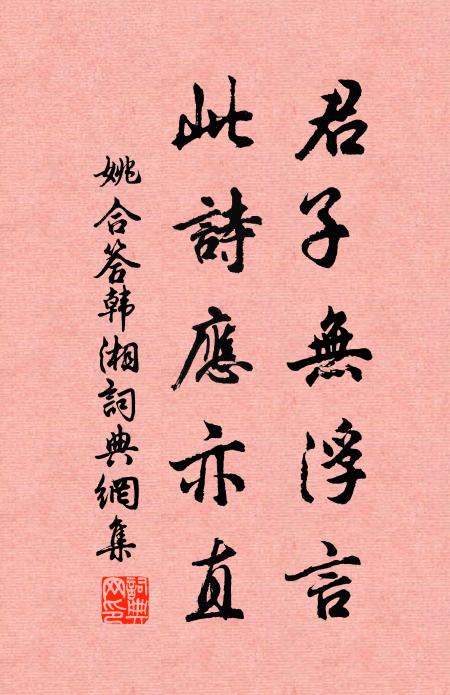 君子無浮言
此詩應亦直
姚合答韩湘詞典網集
詞典网印